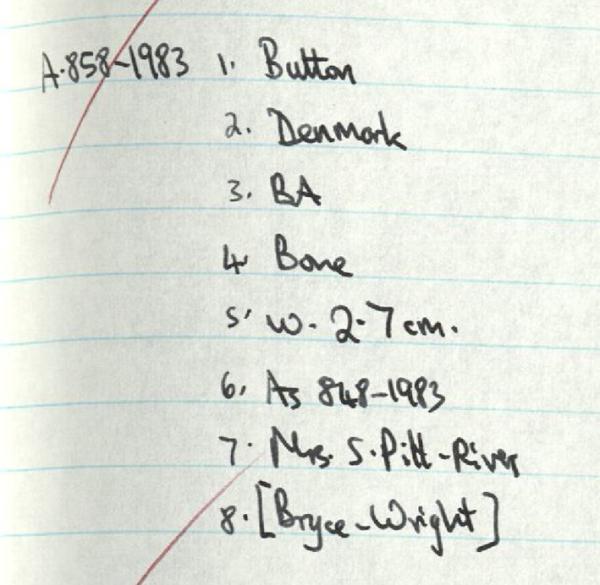 A.858-1983 1. Button
2. Denmark
3. BA
4. Bone
5. W. 2.7 cm.
6. As 848-1983
7. Mrs. S. Pitt-River
8. [Bryce-Wright]